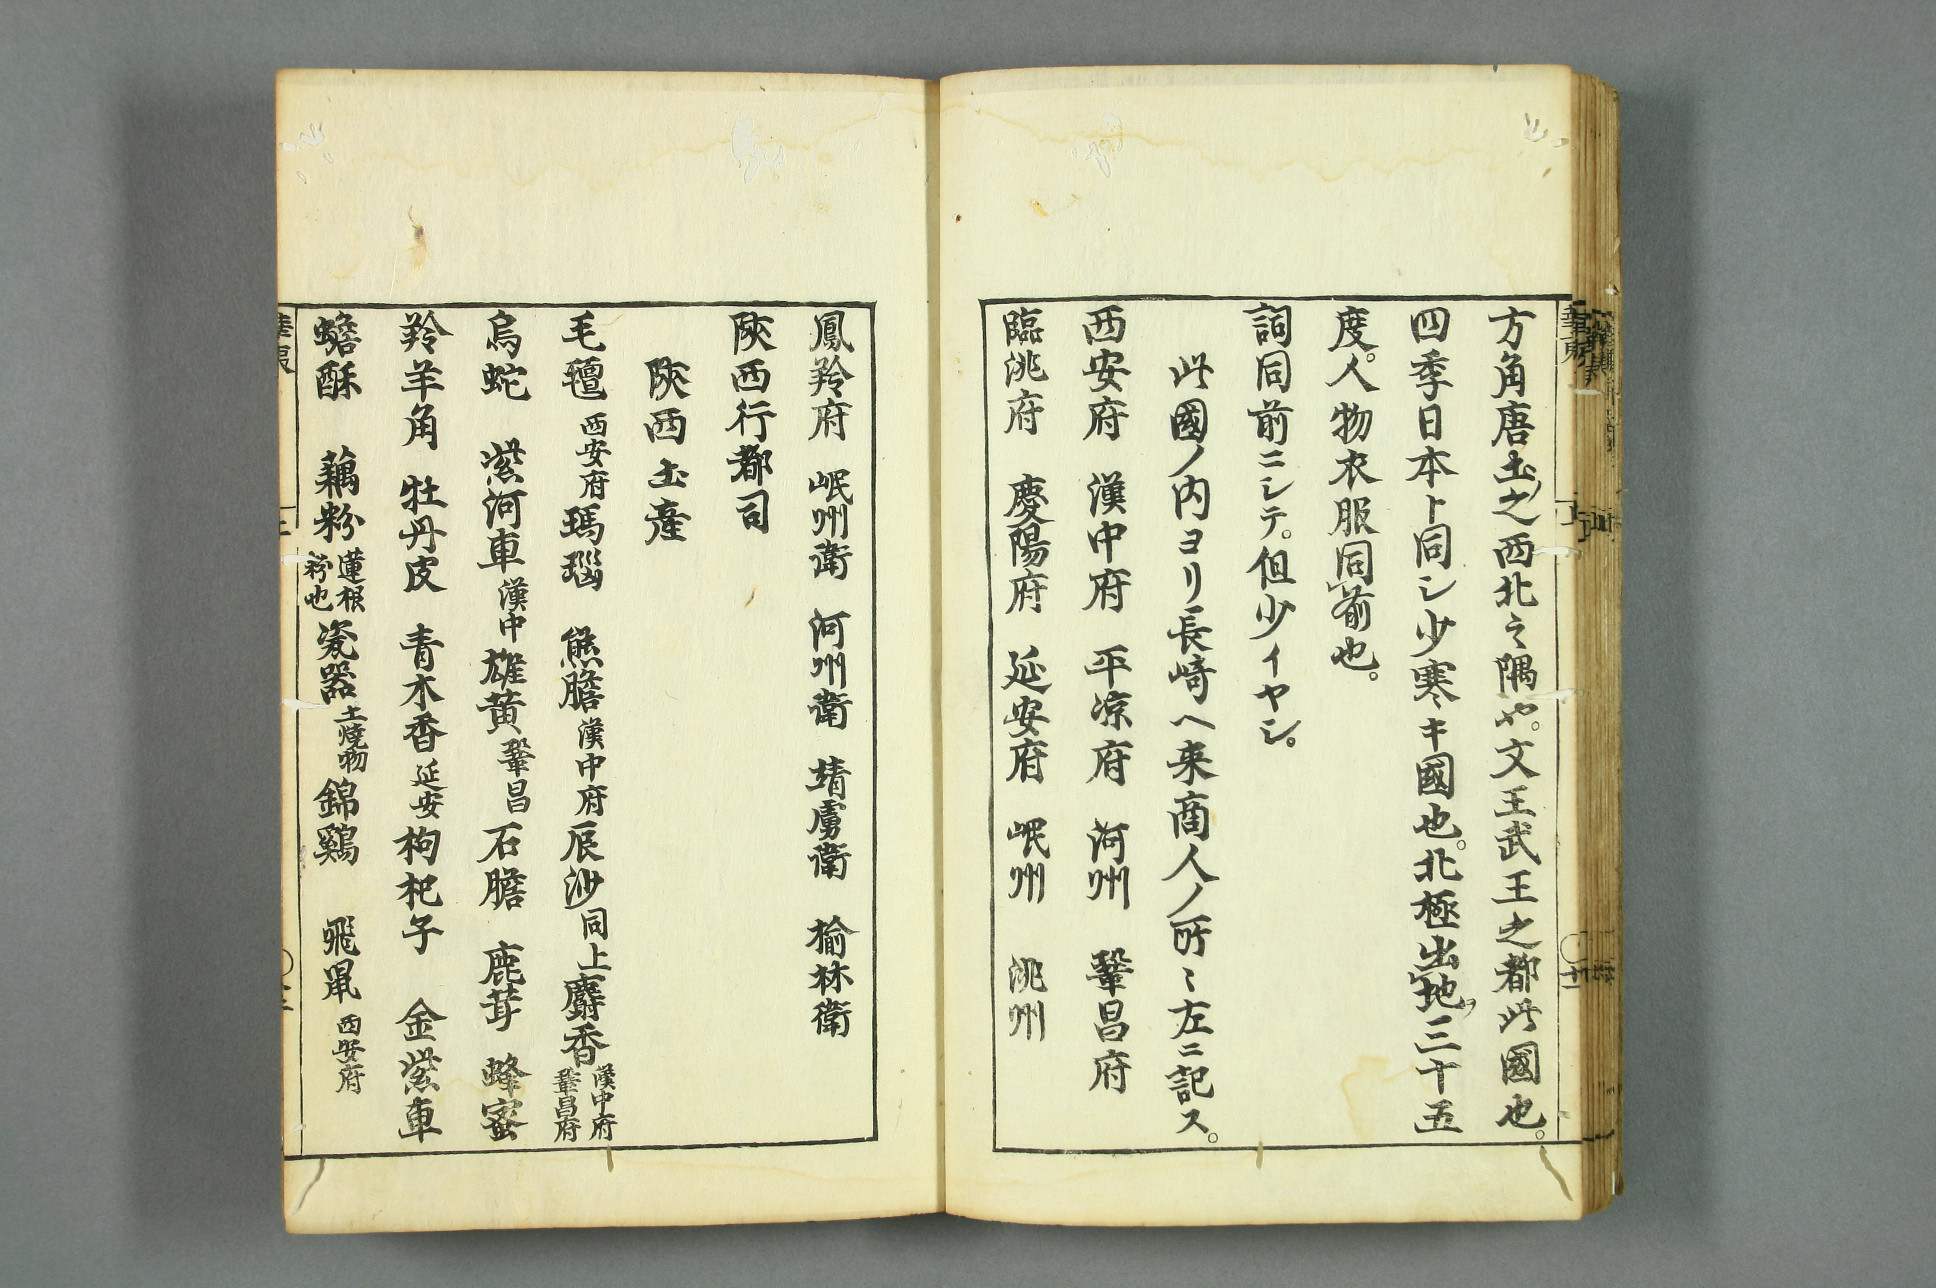 方角唐土之西北之隅也。文王武王之都此國也。
四季日本ト同シ少寒キ國也。北極出地三十五
度。人物衣服同前也。
詞同前ニシテ。但少イヤシ。
此國ノ内ヨリ長崎ヘ来商人ノ所〻左ニ記ス。
西安府 漢中府 平凉府 河州 鞏昌府
臨洮府 慶陽府 延安府 岷州 洮州
鳳羚府 岷州衛 河州衛 靖虜衛 榆林衛
陝西行都司
陝西土產
毛氊西安府瑪瑙 熊膽漢中府辰沙同上麝香漢中府鞏昌府
烏蛇 紫河車漢中雄黄鞏昌石膽 鹿茸 蜂蜜
羚羊角 牡丹皮 青木香延安枸杞子 金紫車
蟾酥 藕粉蓮根粉也瓷器土燒物錦鷄 飛鼠西安府